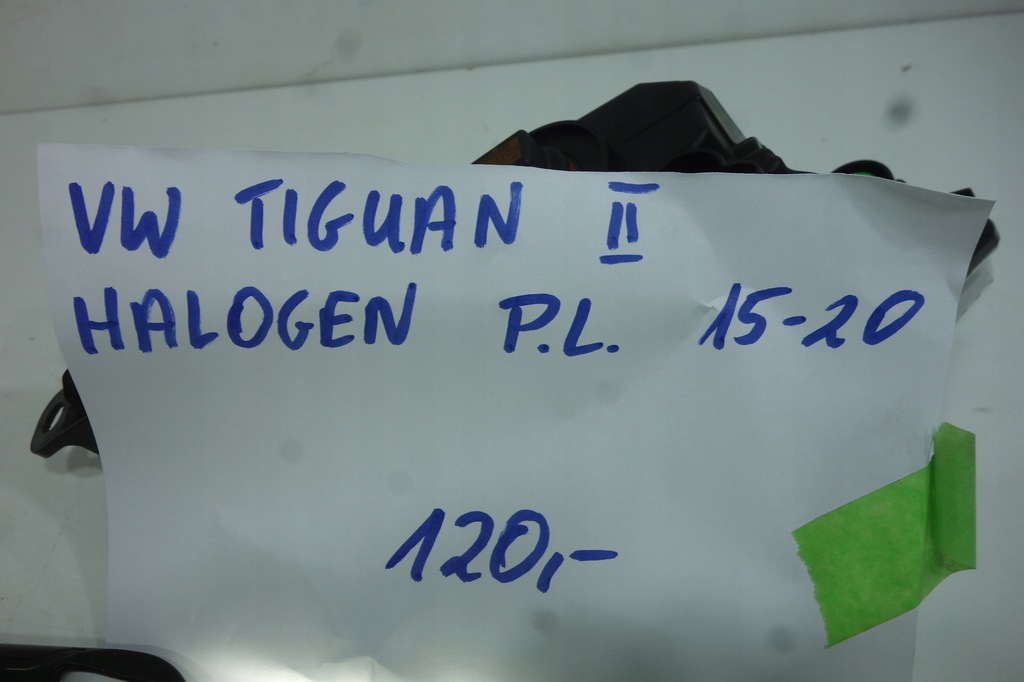 VW TIGUAN II
HALOGEN P.L. 15-20
120,-